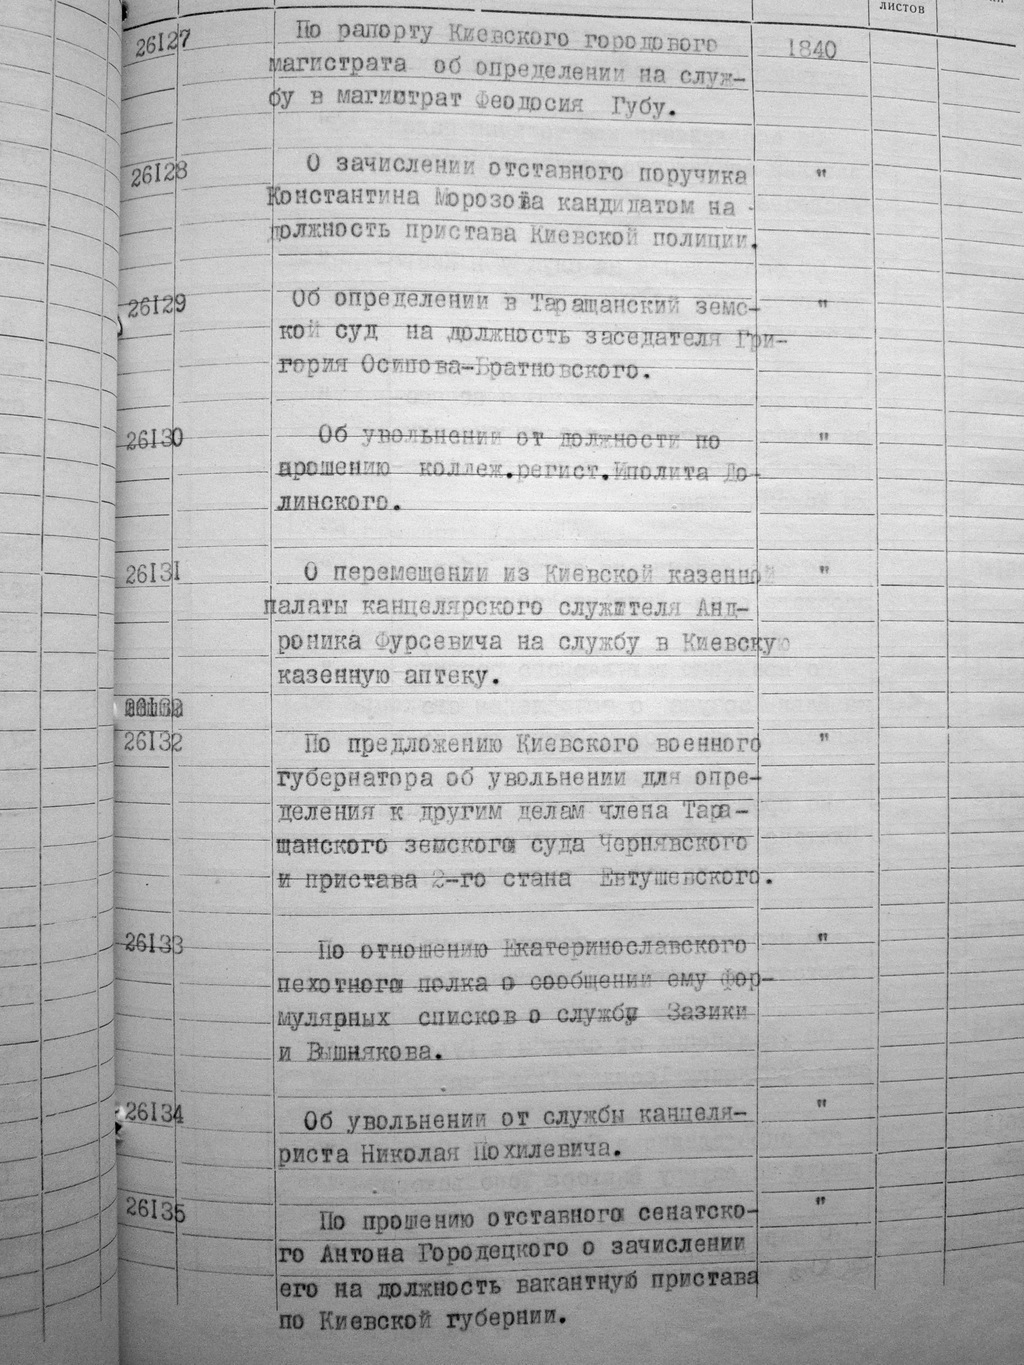 листов
26I27 По рапорту Киевского городового 1840
магистрата об определении на служ-
бу в магистрат Феодосия Губу.
26I28 О зачислении отставного поручика "
Константина Морозова кандидатом на -
должность пристава Киевской полиции.
26I29 Об определении в Таращанский земс- "
кой суд на должность заседателя Гри-
гория Осипова-Братновского.
26I30 Об увольнении от должности по "
прошению коллеж.регист.Иполита До-
линского.
26I3I О перемещении из Киевской казенной "
палаты канцелярского служителя Анд-
роника Фурсевича на службу в Киевскую
казенную аптеку.
26I32 По предложению Киевского военного "
губернатора об увольнении для опре-
деления к другим делам члена Тара-
щанского земского суда Чернявского
и пристава 2-го стана Евтушевского.
26I33 По отношению Екатеринославского "
пехотного полка о сообщении ему фор-
мулярных списков о службе Зазики
и Вышнякова.
26I34 Об увольнении от службы канцеля- "
риста Николая Похилевича.
26I35 По прошению отставного сенатско- "
го Антона Городецкого о зачислении
его на должность вакантную пристава
по Киевской губернии.